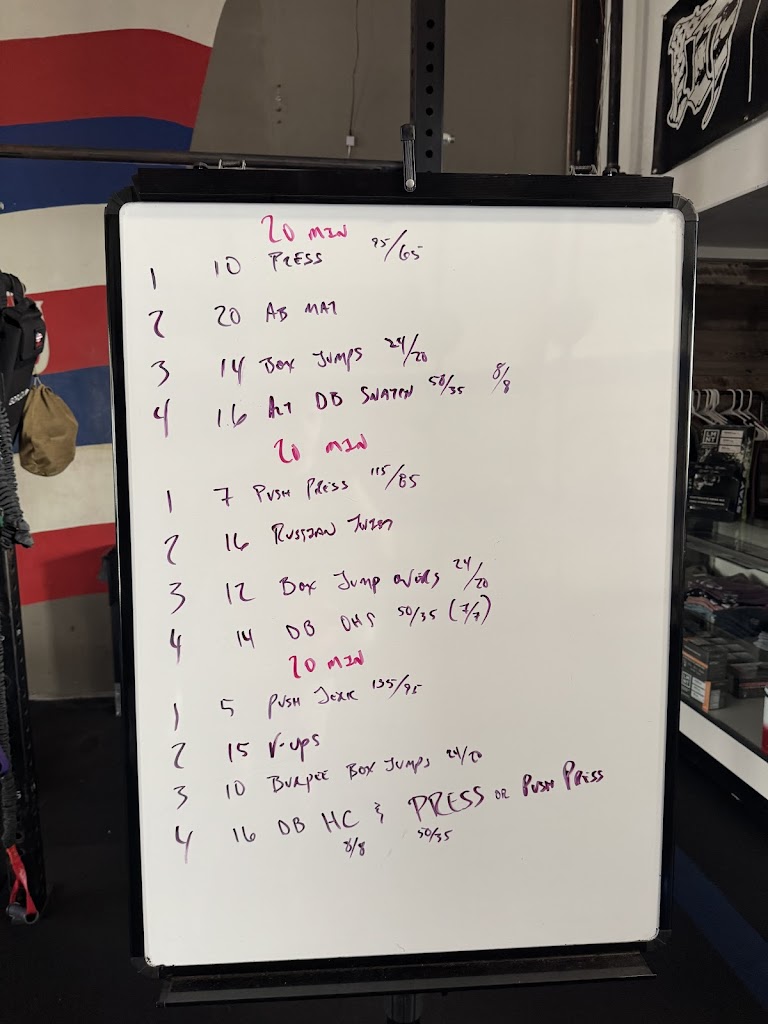 20 MIN
1 10 PRESS 95/65
2 20 AB MAT
3 14 BOX JUMPS 24/20
4 16 ALT DB SNATCH 50/35 8/8
20 MIN
1 7 PUSH PRESS 115/85
2 16 RUSSIAN TWIST
3 12 BOX JUMP OVERS 24/20
4 14 DB OHS 50/35 (7/7)
20 MIN
1 5 PUSH JERK 135/95
2 15 V-UPS
3 10 BURPEE BOX JUMPS 24/20
4 16 DB HC & PRESS OR PUSH PRESS
8/8 50/35
LMNT